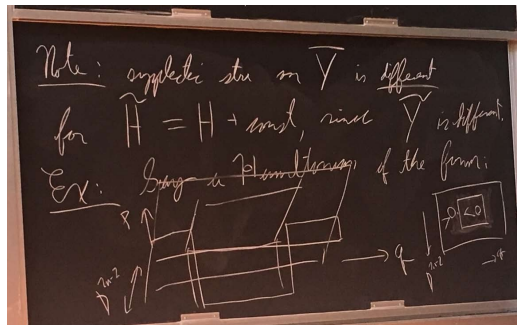 Note: symplectic str on Y̅ is different
for H̃ = H + const, since Y̅ is different.
Ex: Say a Hamiltonian of the form:
p
q
2n-2
<0
2n-2